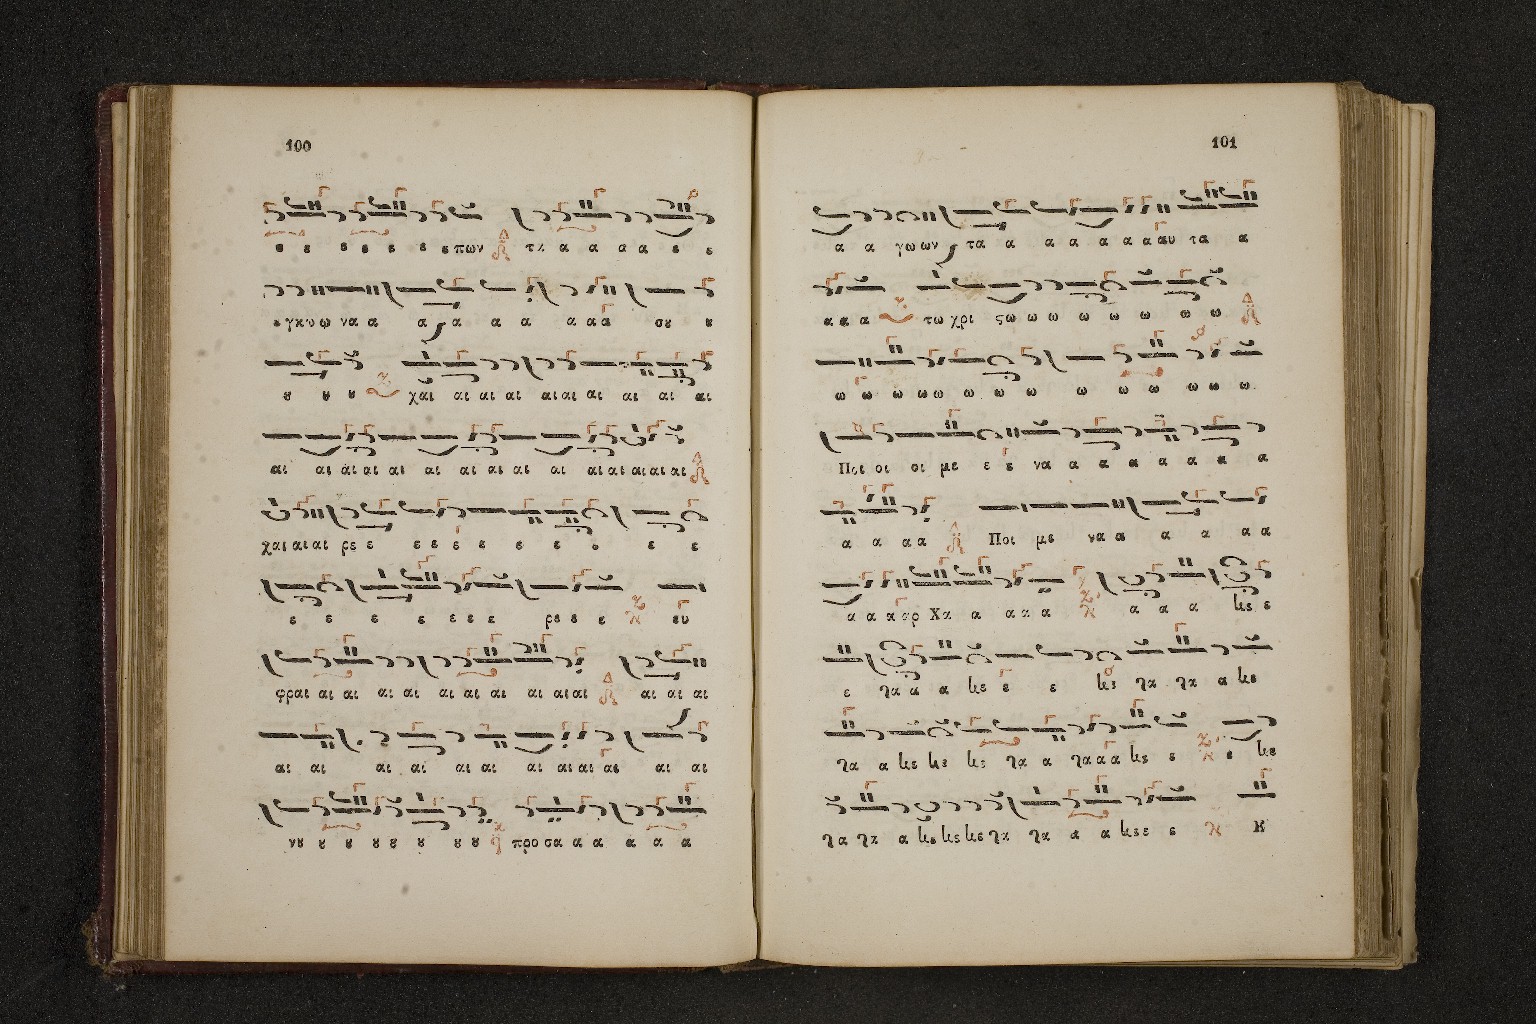 100
ε ε ε ε ε ε ε πων τα α α α α ε ε
ε γκυω να α α α α α α α α ου ȣ
ȣ ȣ ȣ χαι αι αι αι αι αι αι αι αι αι
αι αι αι αι αι αι αι αι αι αι αι αι αι αι αι αι
χαι αι αι ρε ε ε ε ε ε ε ε ε ε
ε ε ε ε ε ε ε ρε ε ε ευ
φραι αι αι αι αι αι αι αι αι αι αι αι αι αι
αι αι αι αι αι αι αι αι αι αι αι αι
νȣ ȣ ȣ ȣ ȣ ȣ ȣ ȣ προ σα α α α α α
101
α α γω ων τα α α α α α α αυ τα α
α α α τω χρι ςω ω ω ω ω ω ω ω
ω ω ω ω ω ω ω ω ω ω ω ω ω ω
Ποι οι οι με ε ε να α α α α α α α
α α α α Ποι με να α α α α α
α α α αρ Χα α α α α α α α λε ε
ε γα α α λε ε ε λε γα γα α λε
γα α λε λε λε γα α γα α α λε ε ε λε
γα γα α λε λε λε γα γα α α λε ε ε Κ